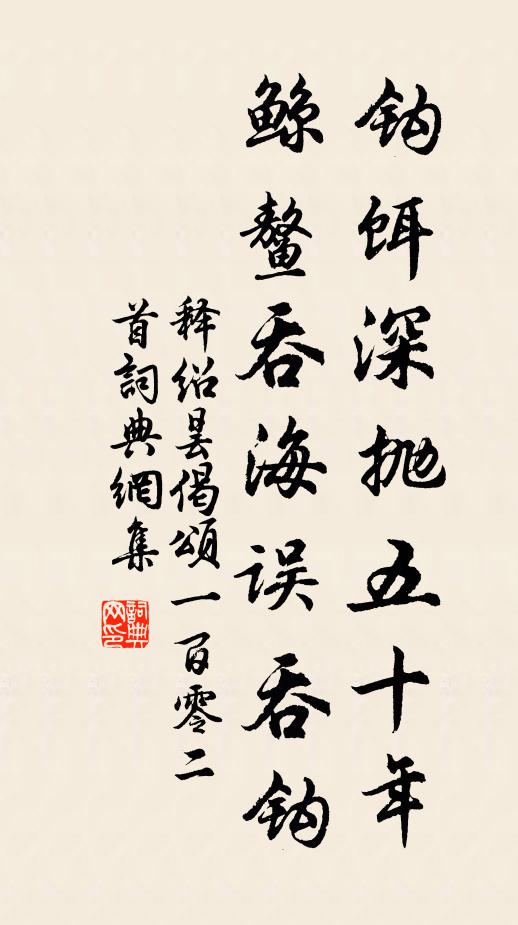 钩饵深抛五十年
鲸鳌吞海误吞钩
释绍昙偈颂一百零二
首词典網集
詞典
网印